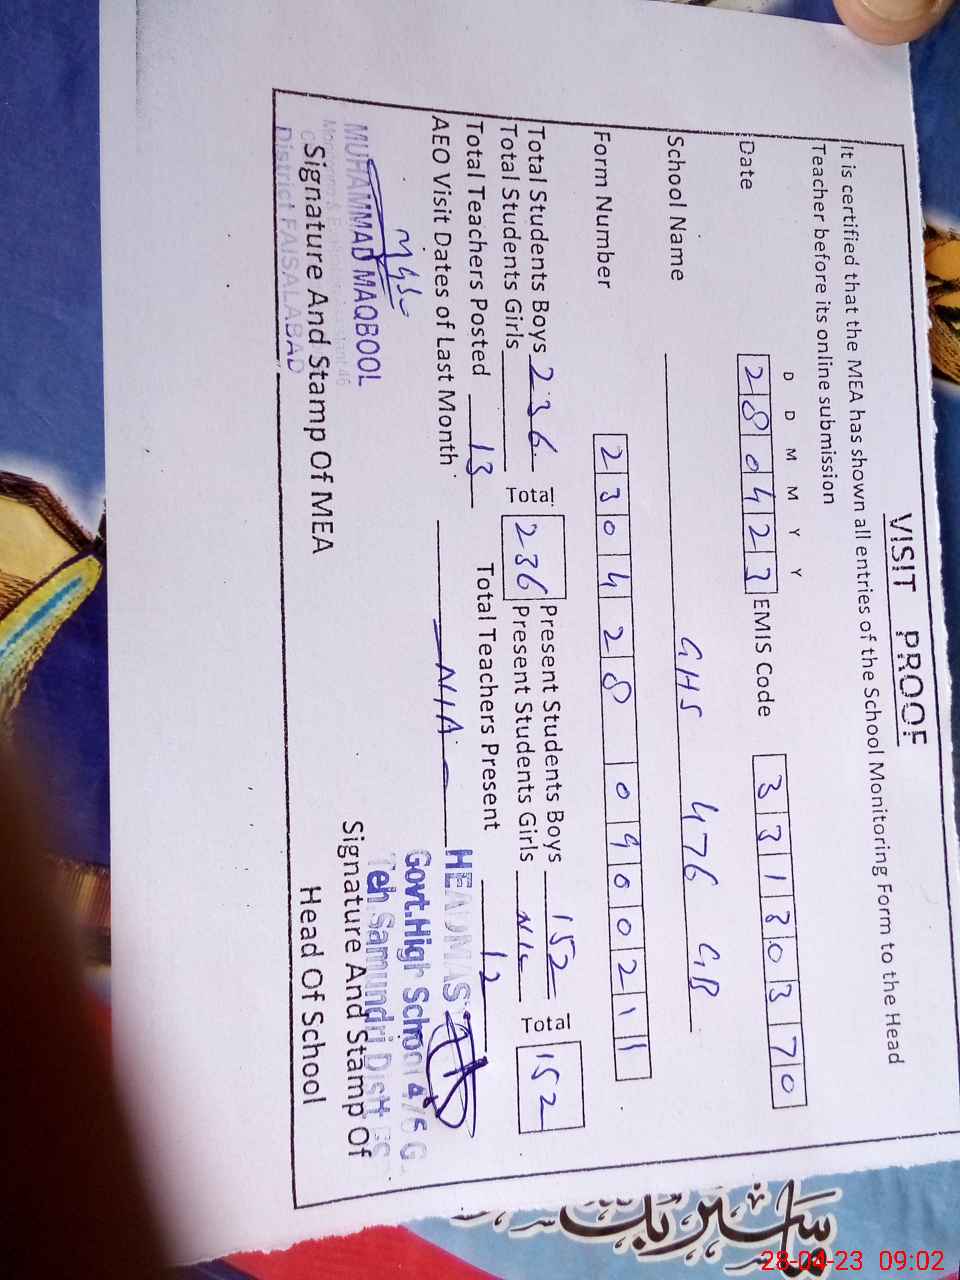 VISIT PROOF
It is certified that the MEA has shown all entries of the School Monitoring Form to the Head
Teacher before its online submission
D D M M Y Y
Date 280423 EMIS Code 33130370
School Name GHS 476 GB
Form Number 230428 0900211
Total Students Boys 236 Present Students Boys 152
Total 236 Total 152
Total Students Girls Present Students Girls NIL
Total Teachers Posted 13 Total Teachers Present 12
AEO Visit Dates of Last Month N/A
MUHAMMAD MAQBOOL
District FAISALABAD
Signature And Stamp Of MEA
Govt.High School 476 G
Teh.Samundri Distt
Signature And Stamp Of
Head Of School
28-04-23 09:02